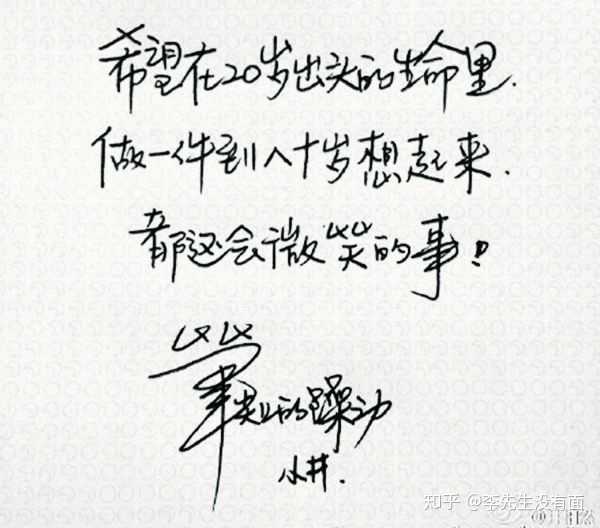 希望在20岁出头的生命里.
做一件到八十岁想起来.
都还会微笑的事!
笔尖的躁动
小井.
知乎 @李先生没有面